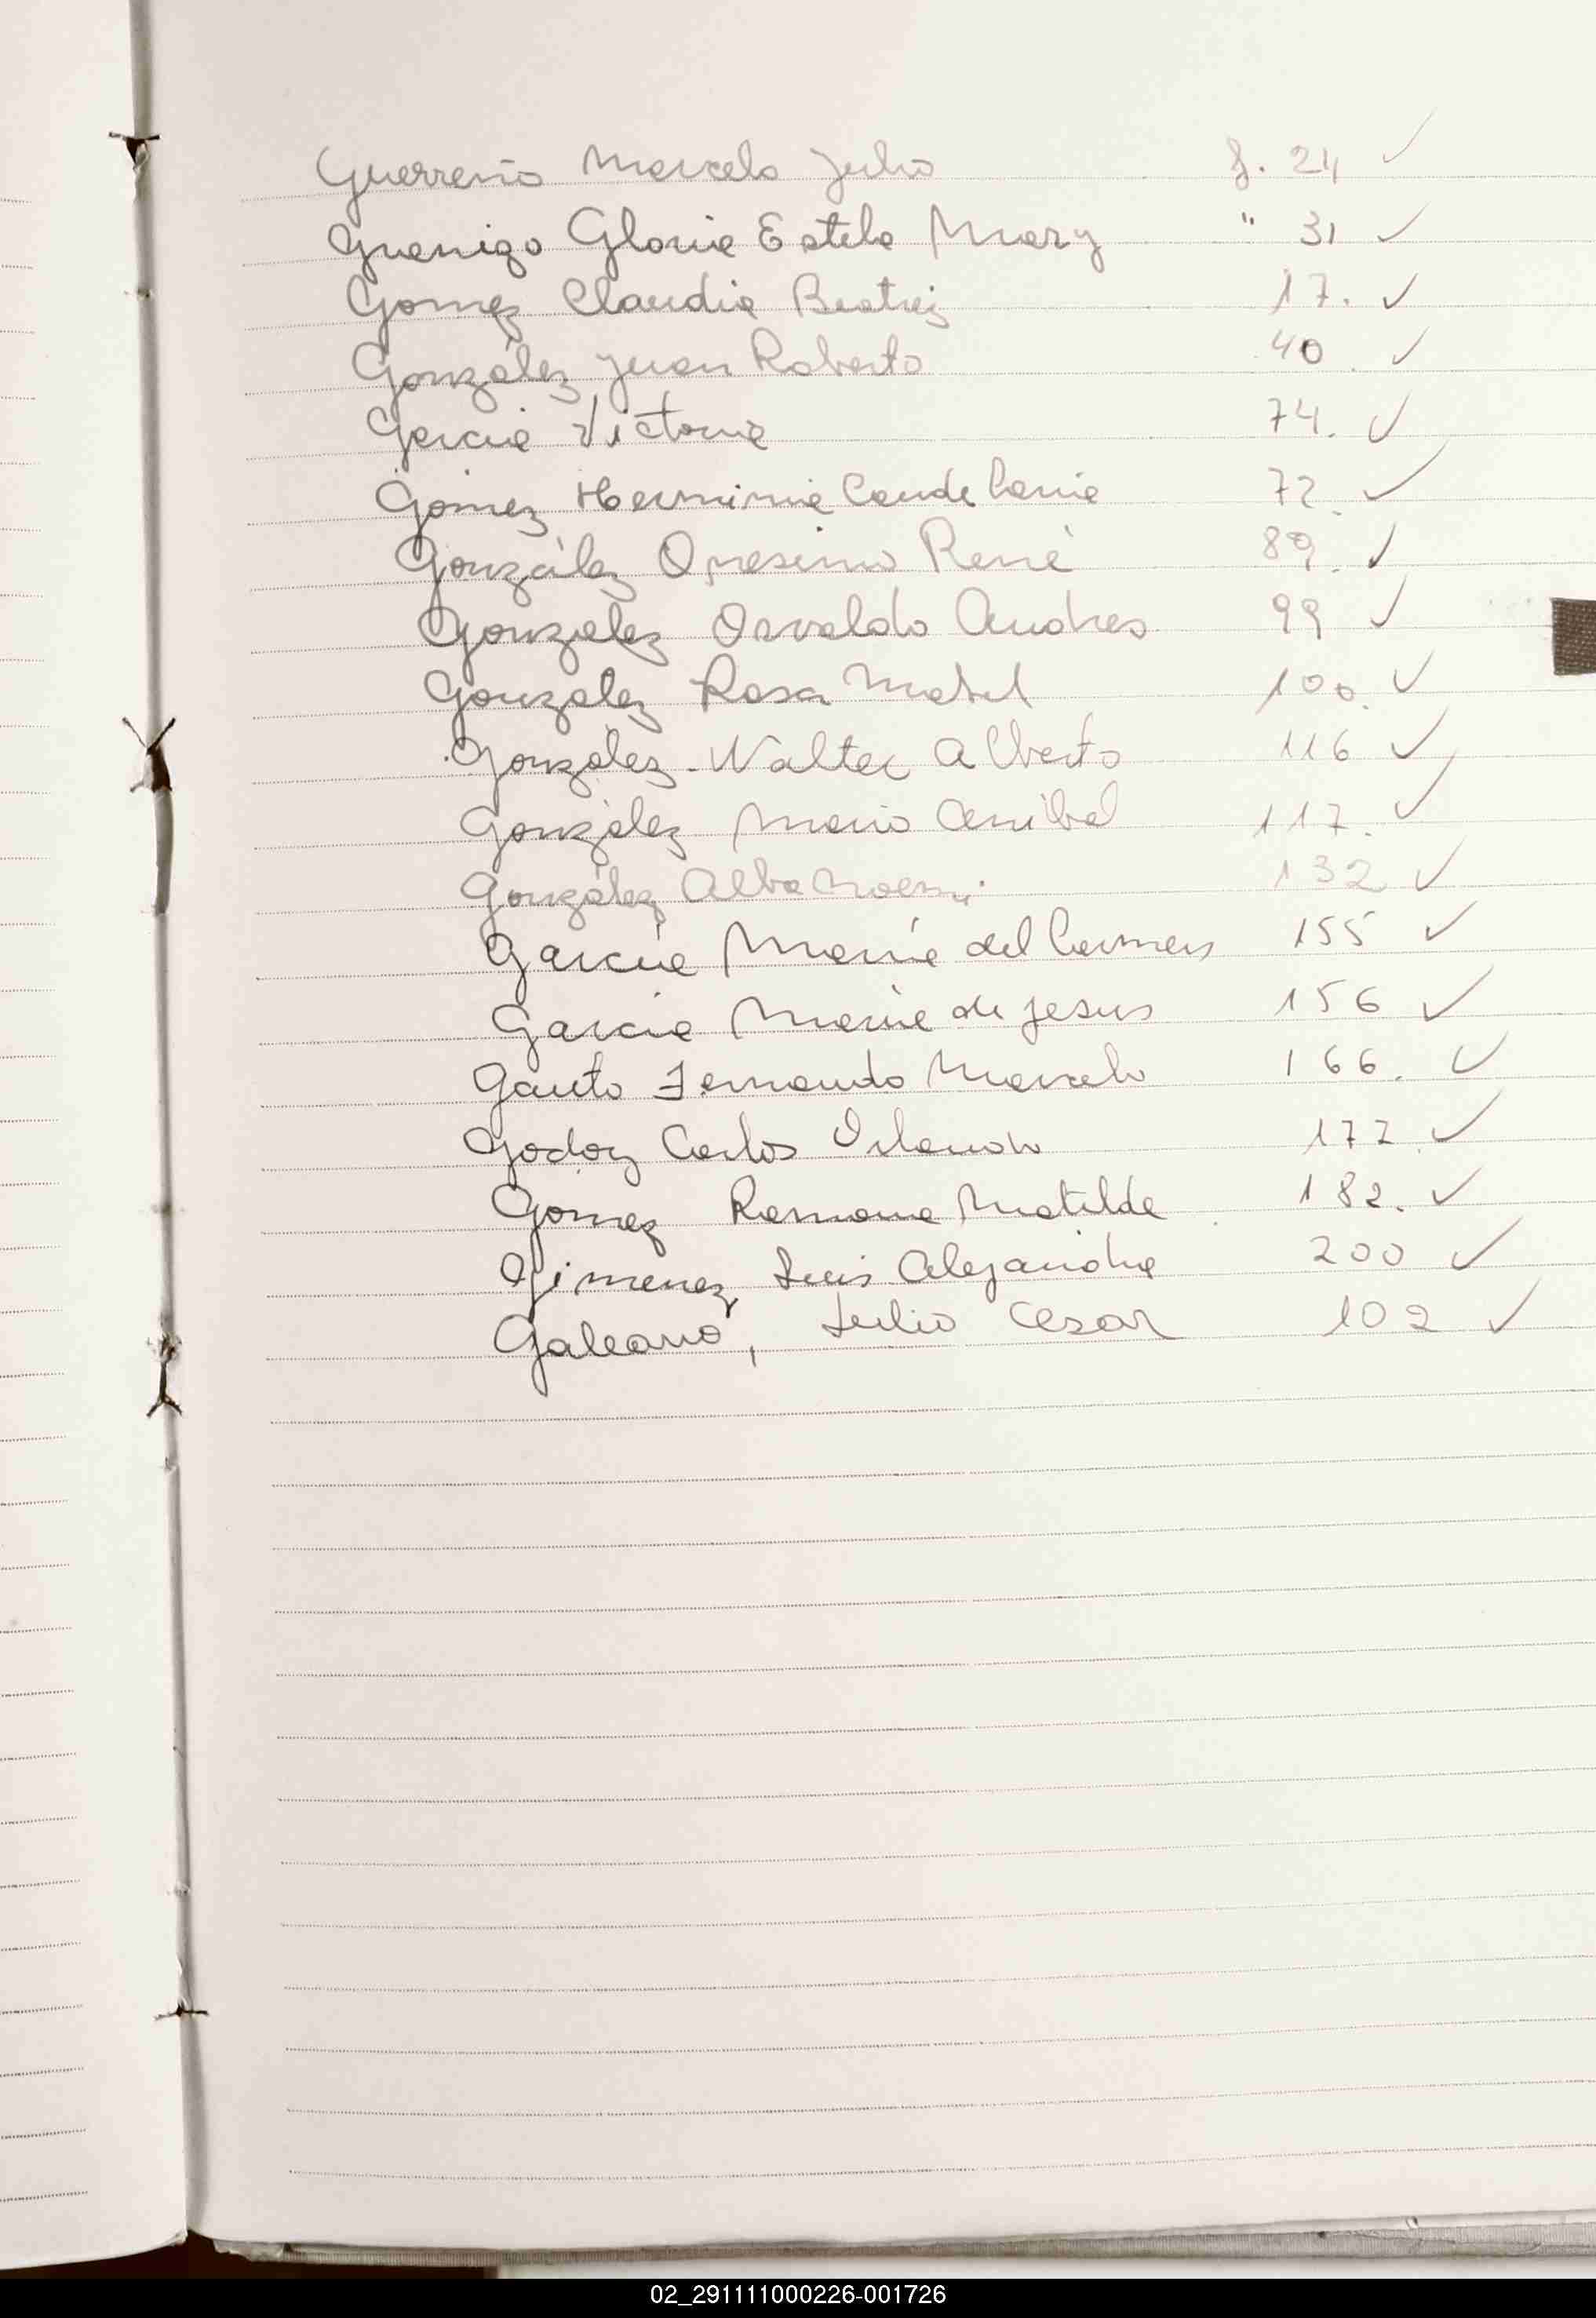 Guerreño Marcelo Julio f. 24 ✓
Gramigo Gloria Estela Mary " 31 ✓
Gomez Claudia Beatriz 17. ✓
González Juan Roberto 40. ✓
Garcia Victoria 74. ✓
Gómez Herminia Candelaria 72. ✓
González Onesimo René 89. ✓
Gonzalez Osvaldo Andres 99 ✓
Gonzalez Rosa Mabel 100. ✓
González Walter Alberto 116 ✓
González Mario Anibal 117. ✓
González Alba Noemi 132 ✓
García María del Carmen 155 ✓
Garcia Maria de Jesus 156 ✓
Gauto Fernando Marcelo 166. ✓
Godoy Carlos Orlando 177. ✓
Gomez Ramona Matilde 182. ✓
Gimenez Luis Alejandro 200 ✓
Galeano, Julio Cesar 102 ✓
02_291111000226-001726